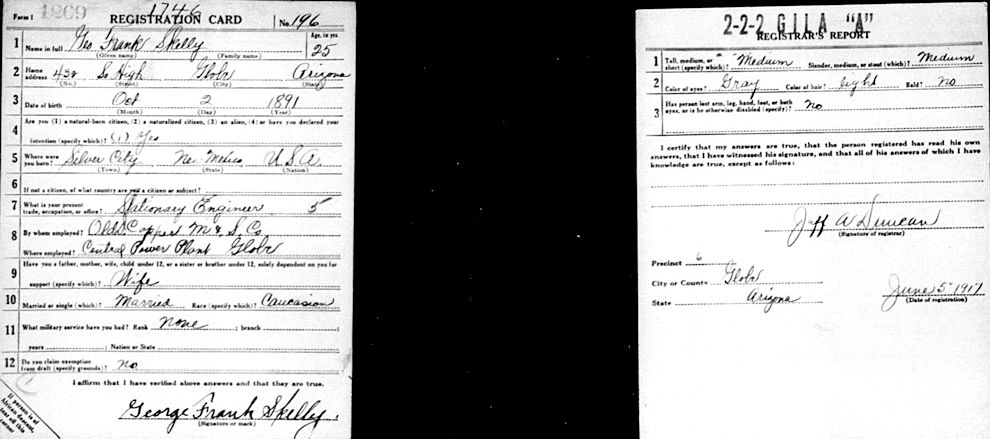 Form 1 1269 1746
REGISTRATION CARD No. 196
1 Name in full Geo Frank Skelly Age, in yrs 25
(Given name) (Family name)
2 Home address 438 So High Globe Arizona
(No.) (Street) (City) (State)
3 Date of birth Oct 2 1891
(Month) (Day) (Year)
4 Are you (1) a natural-born citizen, (2) a naturalized citizen, (3) an alien, (4) or have you declared your
intention (specify which)? (1) Yes
5 Where were you born? Silver City New Mexico U.S.A.
(Town) (State) (Nation)
6 If not a citizen, of what country are you a citizen or subject?
7 What is your present trade, occupation, or office? Stationary Engineer 5
8 By whom employed? Old Copper M & S Co
Where employed? Central Power Plant Globe
9 Have you a father, mother, wife, child under 12, or a sister or brother under 12, solely dependent on you for
support (specify which)? Wife
10 Married or single (which)? Married Race (specify which)? Caucasion
11 What military service have you had? Rank None ; branch
years ; Nation or State
12 Do you claim exemption from draft (specify grounds)? No
I affirm that I have verified above answers and that they are true.
George Frank Skelly.
(Signature or mark)
If person is of
African descent,
tear off this
corner
2-2-2 GILA "A"
REGISTRAR'S REPORT
1 Tall, medium, or short (specify which)? Medium Slender, medium, or stout (which)? Medium
2 Color of eyes? Gray Color of hair? light Bald? No
3 Has person lost arm, leg, hand, foot, or both eyes, or is he otherwise disabled (specify)? No
I certify that my answers are true, that the person registered has read his own
answers, that I have witnessed his signature, and that all of his answers of which I have
knowledge are true, except as follows:
Jeff A Duncan
(Signature of registrar)
Precinct 6
City or County Globe
State Arizona
June 5 1917
(Date of registration)